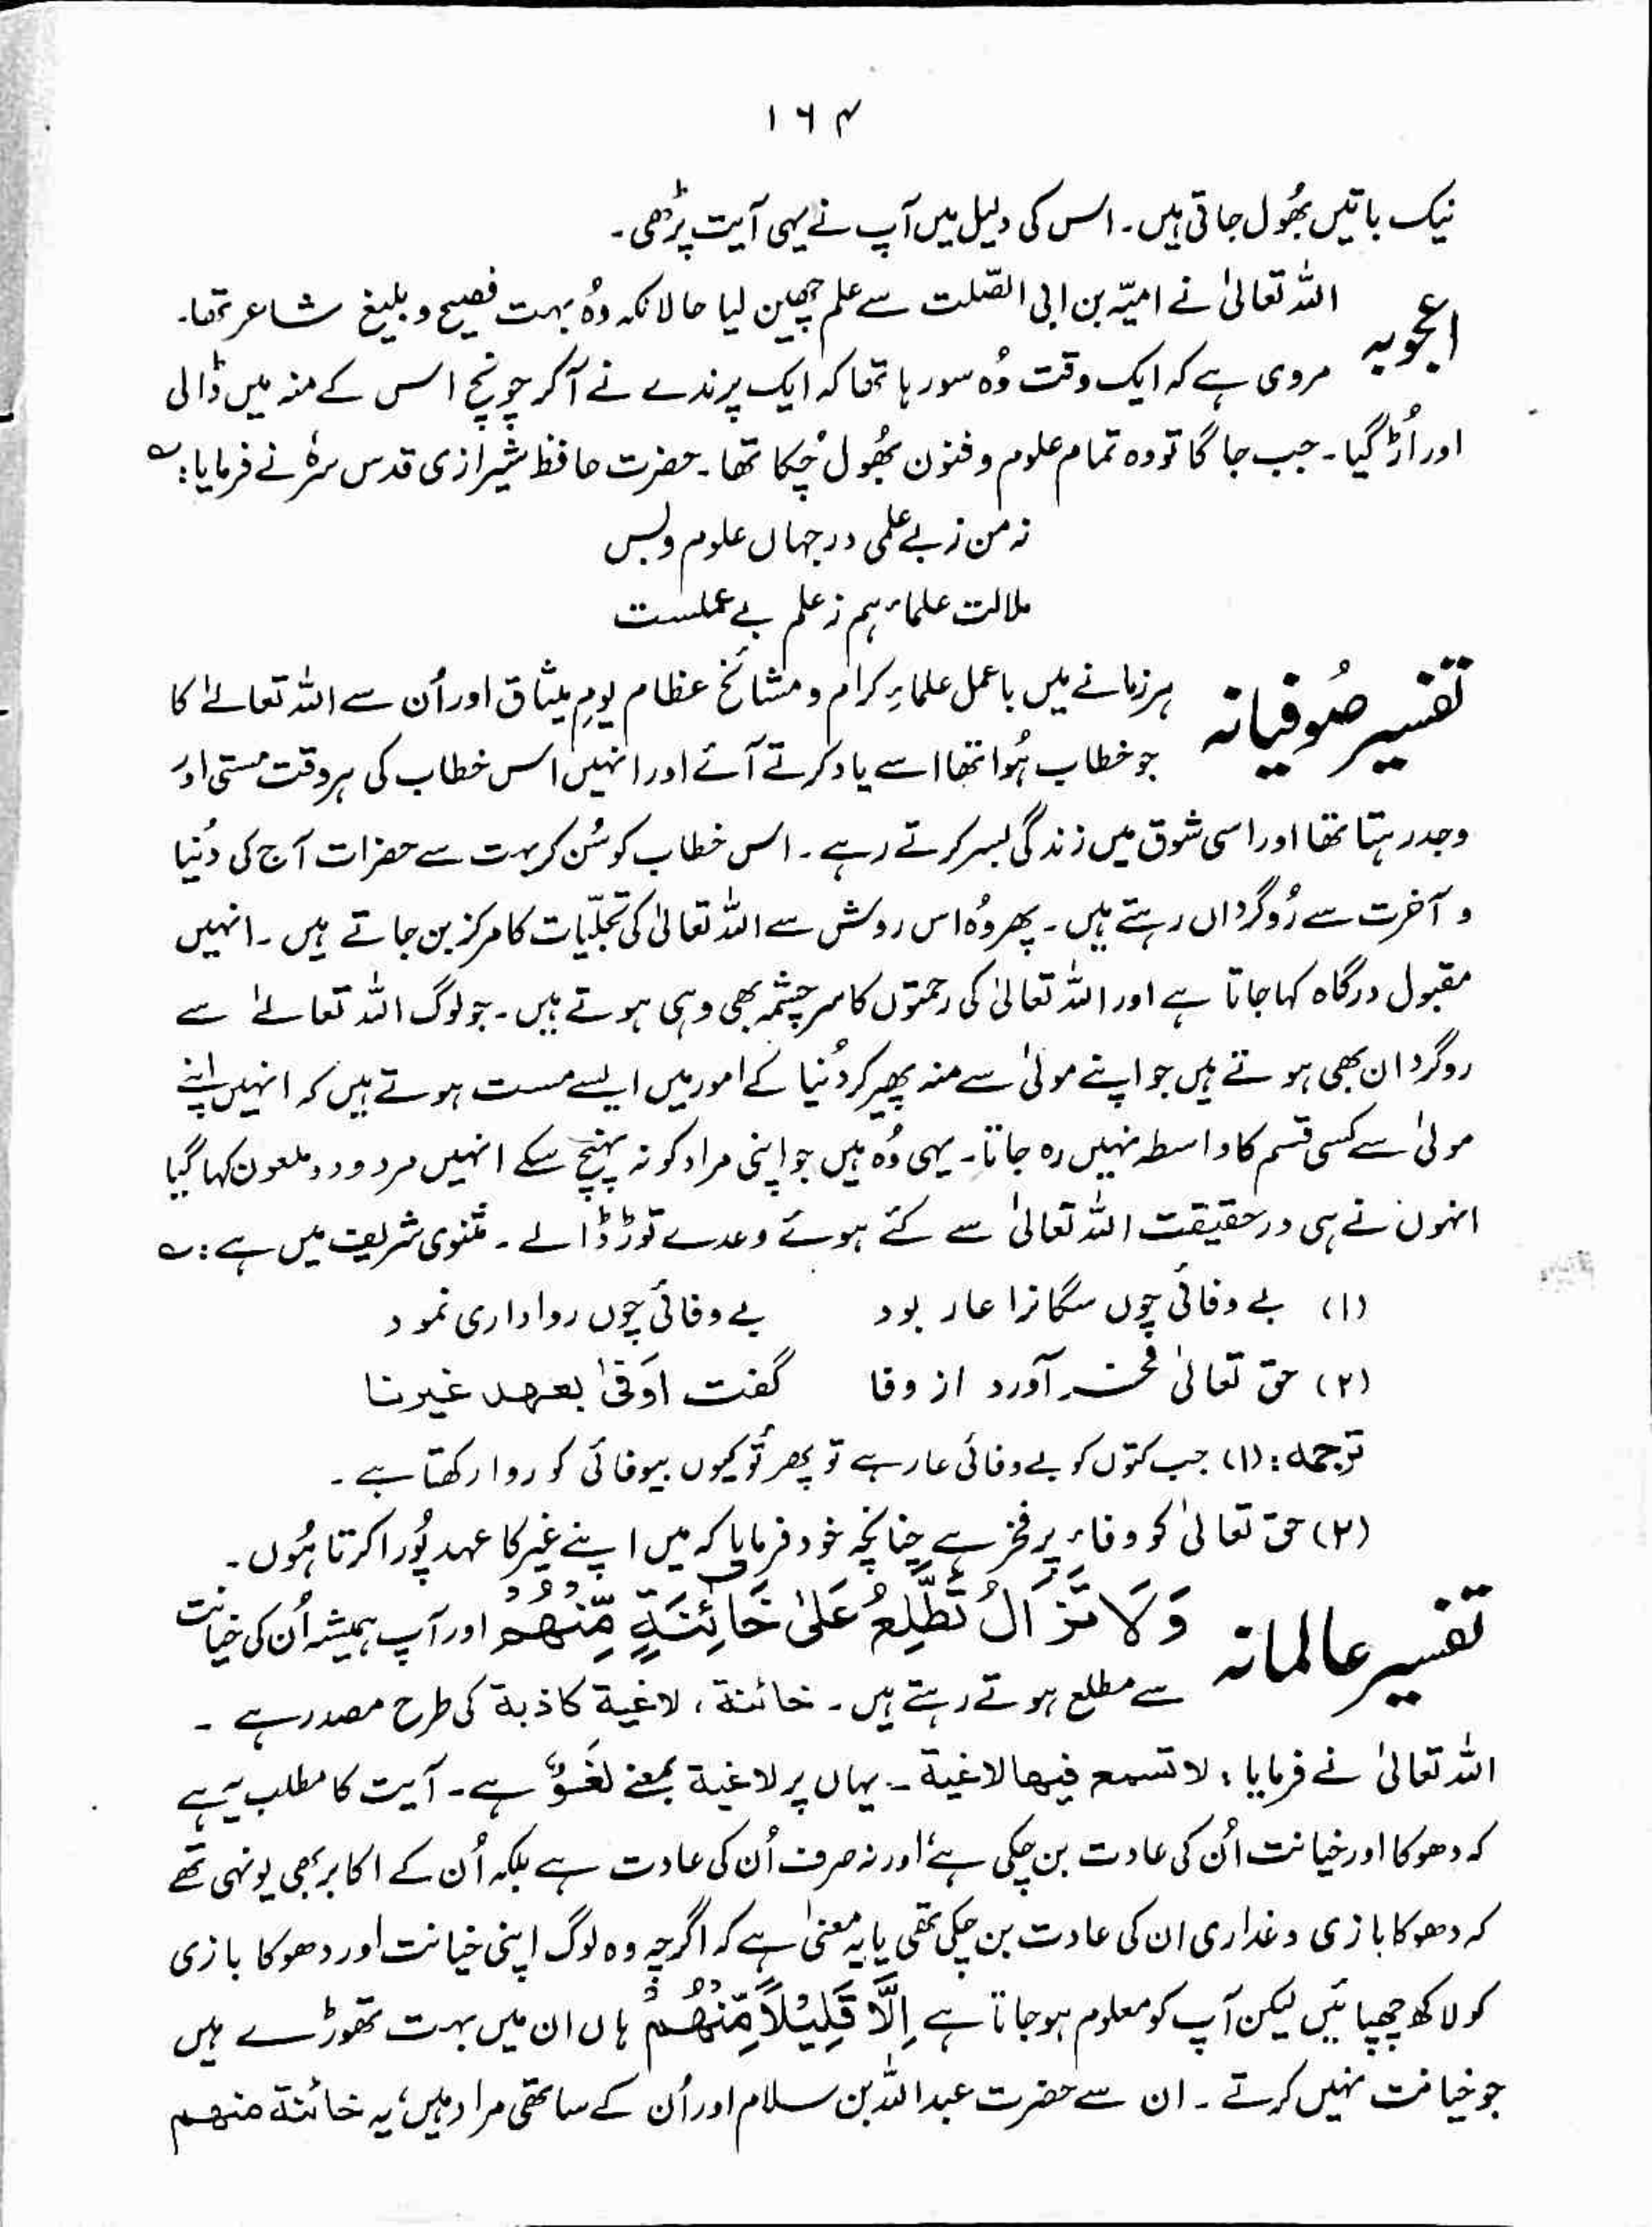 ۱۶۴
نیک باتیں بھُول جاتی ہیں۔ اس کی دلیل میں آپ نے یہی آیت پڑھی۔
اعجوبہ اللہ تعالیٰ نے امیّہ بن ابی الصّلت سے علم چھین لیا حالانکہ وُہ بہت فصیح و بلیغ شاعر تھا۔
مروی ہے کہ ایک وقت وُہ سو رہا تھا کہ ایک پرندے نے آ کر چونچ اس کے منہ میں ڈالی
اور اُڑ گیا۔ جب جاگا تو وہ تمام علوم و فنون بھُول چُکا تھا۔ حضرت حافظ شیرازی قدس سرہٗ نے فرمایا: ؎
نہ من ز بے علمی در جہاں علوم و بس
ملالت علماء ہم ز علم بے عملست
تفسیر صُوفیانہ ہر زمانے میں باعمل علماءِ کرام و مشائخ عظام یومِ میثاق اور اُن سے اللہ تعالےٰ کا
جو خطاب ہُوا تھا اسے یاد کرتے آئے اور انہیں اس خطاب کی ہر وقت مستی اور
وجد رہتا تھا اور اسی شوق میں زندگی بسر کرتے رہے۔ اس خطاب کو سُن کر بہت سے حضرات آج کی دُنیا
و آخرت سے رُوگرداں رہتے ہیں۔ پھر وُہ اس روش سے اللہ تعالیٰ کی تجلّیات کا مرکز بن جاتے ہیں۔ انہیں
مقبول درگاہ کہا جاتا ہے اور اللہ تعالیٰ کی رحمتوں کا سرچشمہ بھی وہی ہوتے ہیں۔ جو لوگ اللہ تعالےٰ سے
روگردان بھی ہوتے ہیں جو اپنے مولیٰ سے منہ پھیر کر دُنیا کے امور میں ایسے مست ہوتے ہیں کہ انہیں اپنے
مولیٰ سے کسی قسم کا واسطہ نہیں رہ جاتا۔ یہی وُہ ہیں جو اپنی مراد کو نہ پہنچ سکے انہیں مردود و ملعون کہا گیا
انہوں نے ہی درحقیقت اللہ تعالیٰ سے کئے ہوئے وعدے توڑ ڈالے۔ مثنوی شریف میں ہے: ؎
(۱) بے وفائی چوں سگانرا عار بود بے وفائی چوں روا داری نمود
(۲) حق تعالیٰ فخر آورد از وفا گفت اَوفیٰ بعھد غیرنا
ترجمہ: (۱) جب کتوں کو بے وفائی عار ہے تو پھر تُو کیوں بیوفائی کو روا رکھتا ہے۔
(۲) حق تعالیٰ کو وفاء پر فخر ہے چنانچہ خود فرمایا کہ میں اپنے غیر کا عہد پُورا کرتا ہُوں۔
تفسیر عالمانہ وَلَا تَزَالُ تَطَّلِعُ عَلٰی خَآئِنَةٍ مِّنْهُمْ اور آپ ہمیشہ اُن کی خیانت
سے مطلع ہوتے رہتے ہیں۔ خائنة، لاغیة کاذبة کی طرح مصدر ہے۔
اللہ تعالیٰ نے فرمایا: لا تسمع فیھا لاغیة۔ یہاں پر لاغیة بمعنے لَغَوٌ ہے۔ آیت کا مطلب یہ ہے
کہ دھوکا اور خیانت اُن کی عادت بن چکی ہے، اور نہ صرف اُن کی عادت ہے بلکہ اُن کے اکابر بھی یونہی تھے
کہ دھوکا بازی و غداری ان کی عادت بن چکی تھی یا یہ معنیٰ ہے کہ اگرچہ وہ لوگ اپنی خیانت اور دھوکا بازی
کو لاکھ چھپائیں لیکن آپ کو معلوم ہو جاتا ہے اِلَّا قَلِیْلًا مِّنْهُمْ ہاں ان میں بہت تھوڑے ہیں
جو خیانت نہیں کرتے۔ ان سے حضرت عبداللہ بن سلام اور اُن کے ساتھی مراد ہیں، یہ خائنة منھم